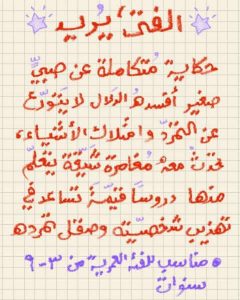 الفتى يُريد
حكاية مُتكاملة عن صبيٍّ
صغير أفسدهُ الدلال لا يتورّع
عن التمرّد وامتلاك الأشياء،
تحدثُ معهُ مُغامرة شيّقة يتعلّم
منها دروساً قيّمة تساعد في
تهذيب شخصيّته وصقل تمرده
• مناسب للفئة العمرية من ٣ - ٩
سنوات